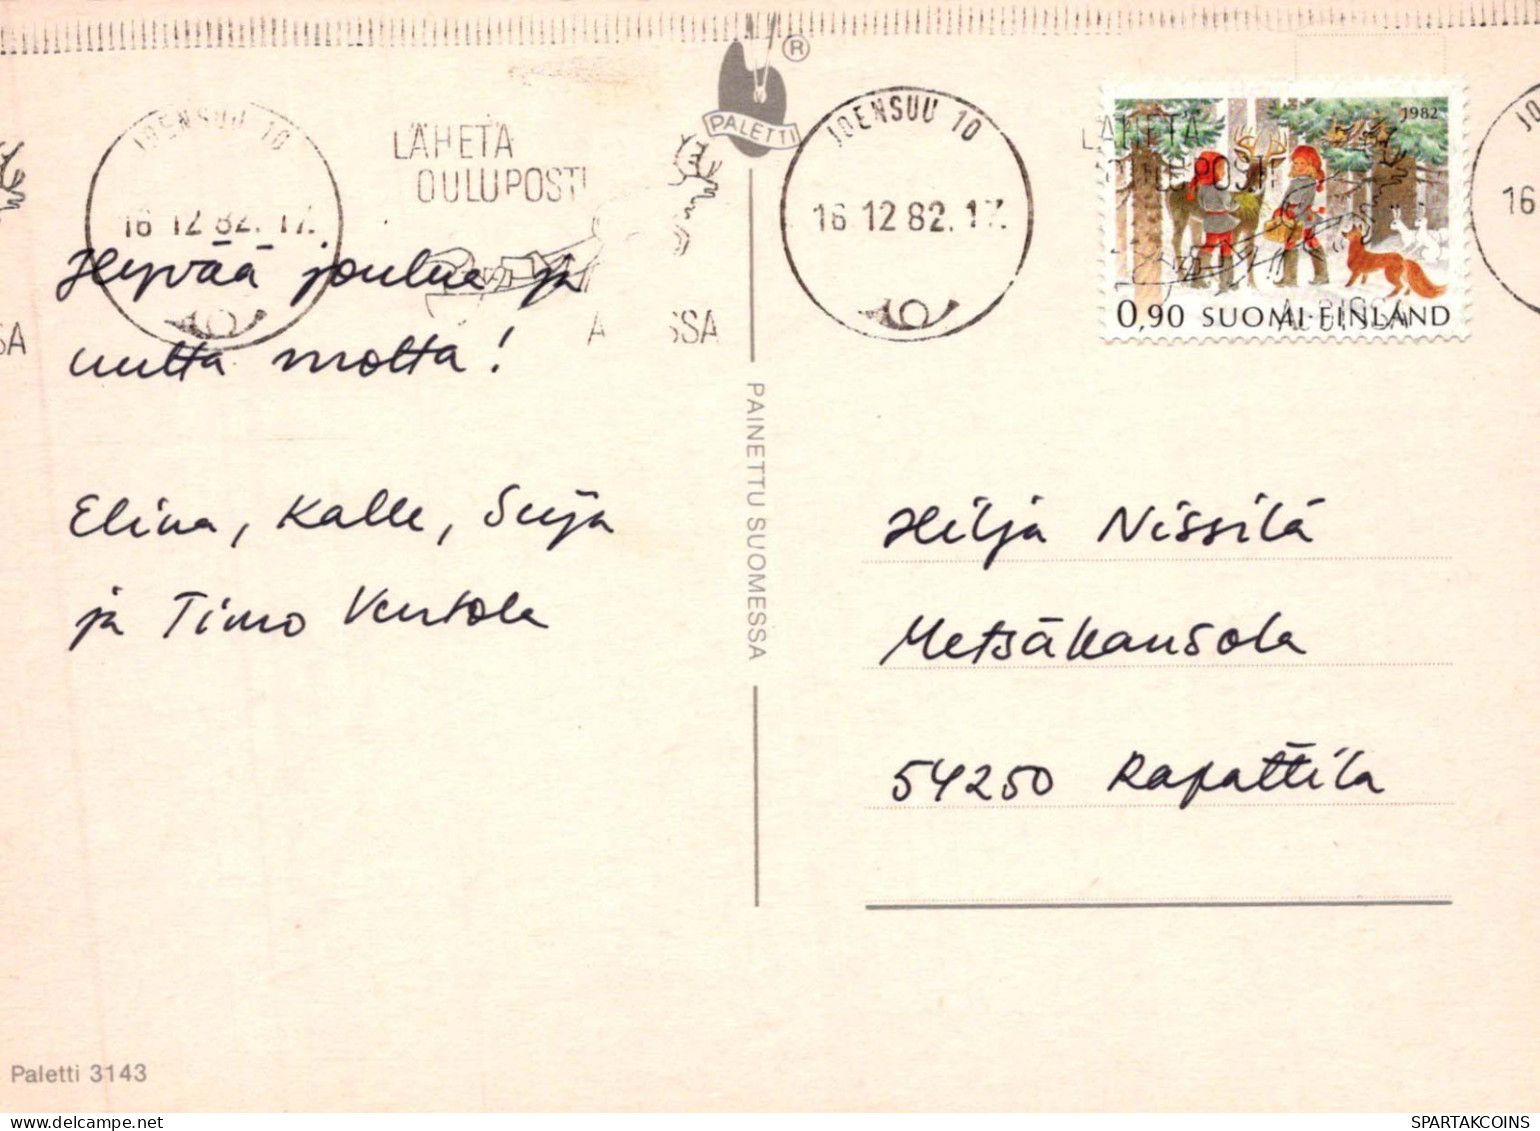 PALETTI
®
JOENSUU 10
16 12 82. 17.
LÄHETÄ
OULUPOSTI
A SSA
SA
Hyvää joulua ja
uutta vuotta!
Elina, Kalle, Seija
ja Timo
PAINETTU SUOMESSA
JOENSUU 10
16 12 82. 17.
LÄHETÄ
1982
0,90 SUOMI-FINLAND
16
Hilja Nissilä
Metsäkansola
54250 Rapattila
Paletti 3143
SPARTAKCOINS